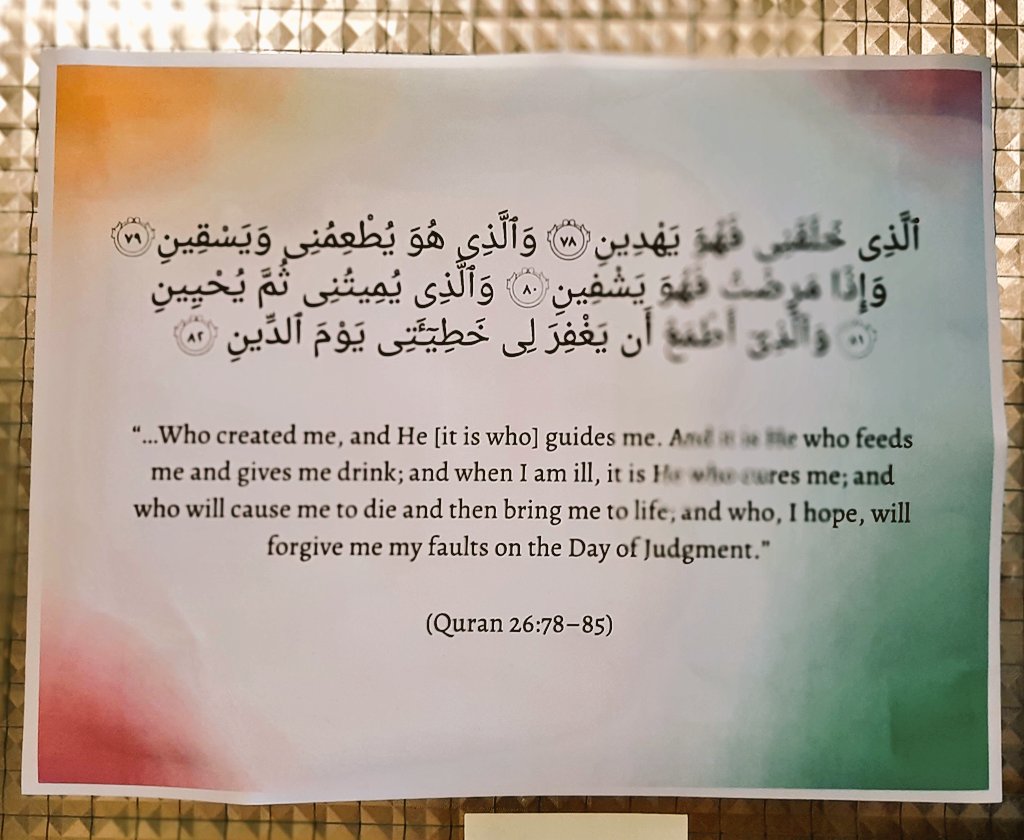 ٱلَّذِى يَهْدِينِ ٧٨ وَٱلَّذِى هُوَ يُطْعِمُنِى وَيَسْقِينِ ٧٩
وَإِذَا يَشْفِينِ ٨٠ وَٱلَّذِى يُمِيتُنِى ثُمَّ يُحْيِينِ
أَن يَغْفِرَ لِى خَطِيٓـَٔتِى يَوْمَ ٱلدِّينِ ٨٢
“...Who created me, and He [it is who] guides me. who feeds
me and gives me drink; and when I am ill, it is me; and
who will cause me to die and then bring me to life; and who, I hope, will
forgive me my faults on the Day of Judgment.”
(Quran 26:78–85)